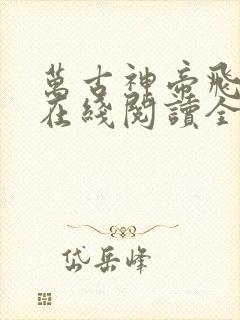 萬古神帝飛
在綫閱讀全
岱岳峰